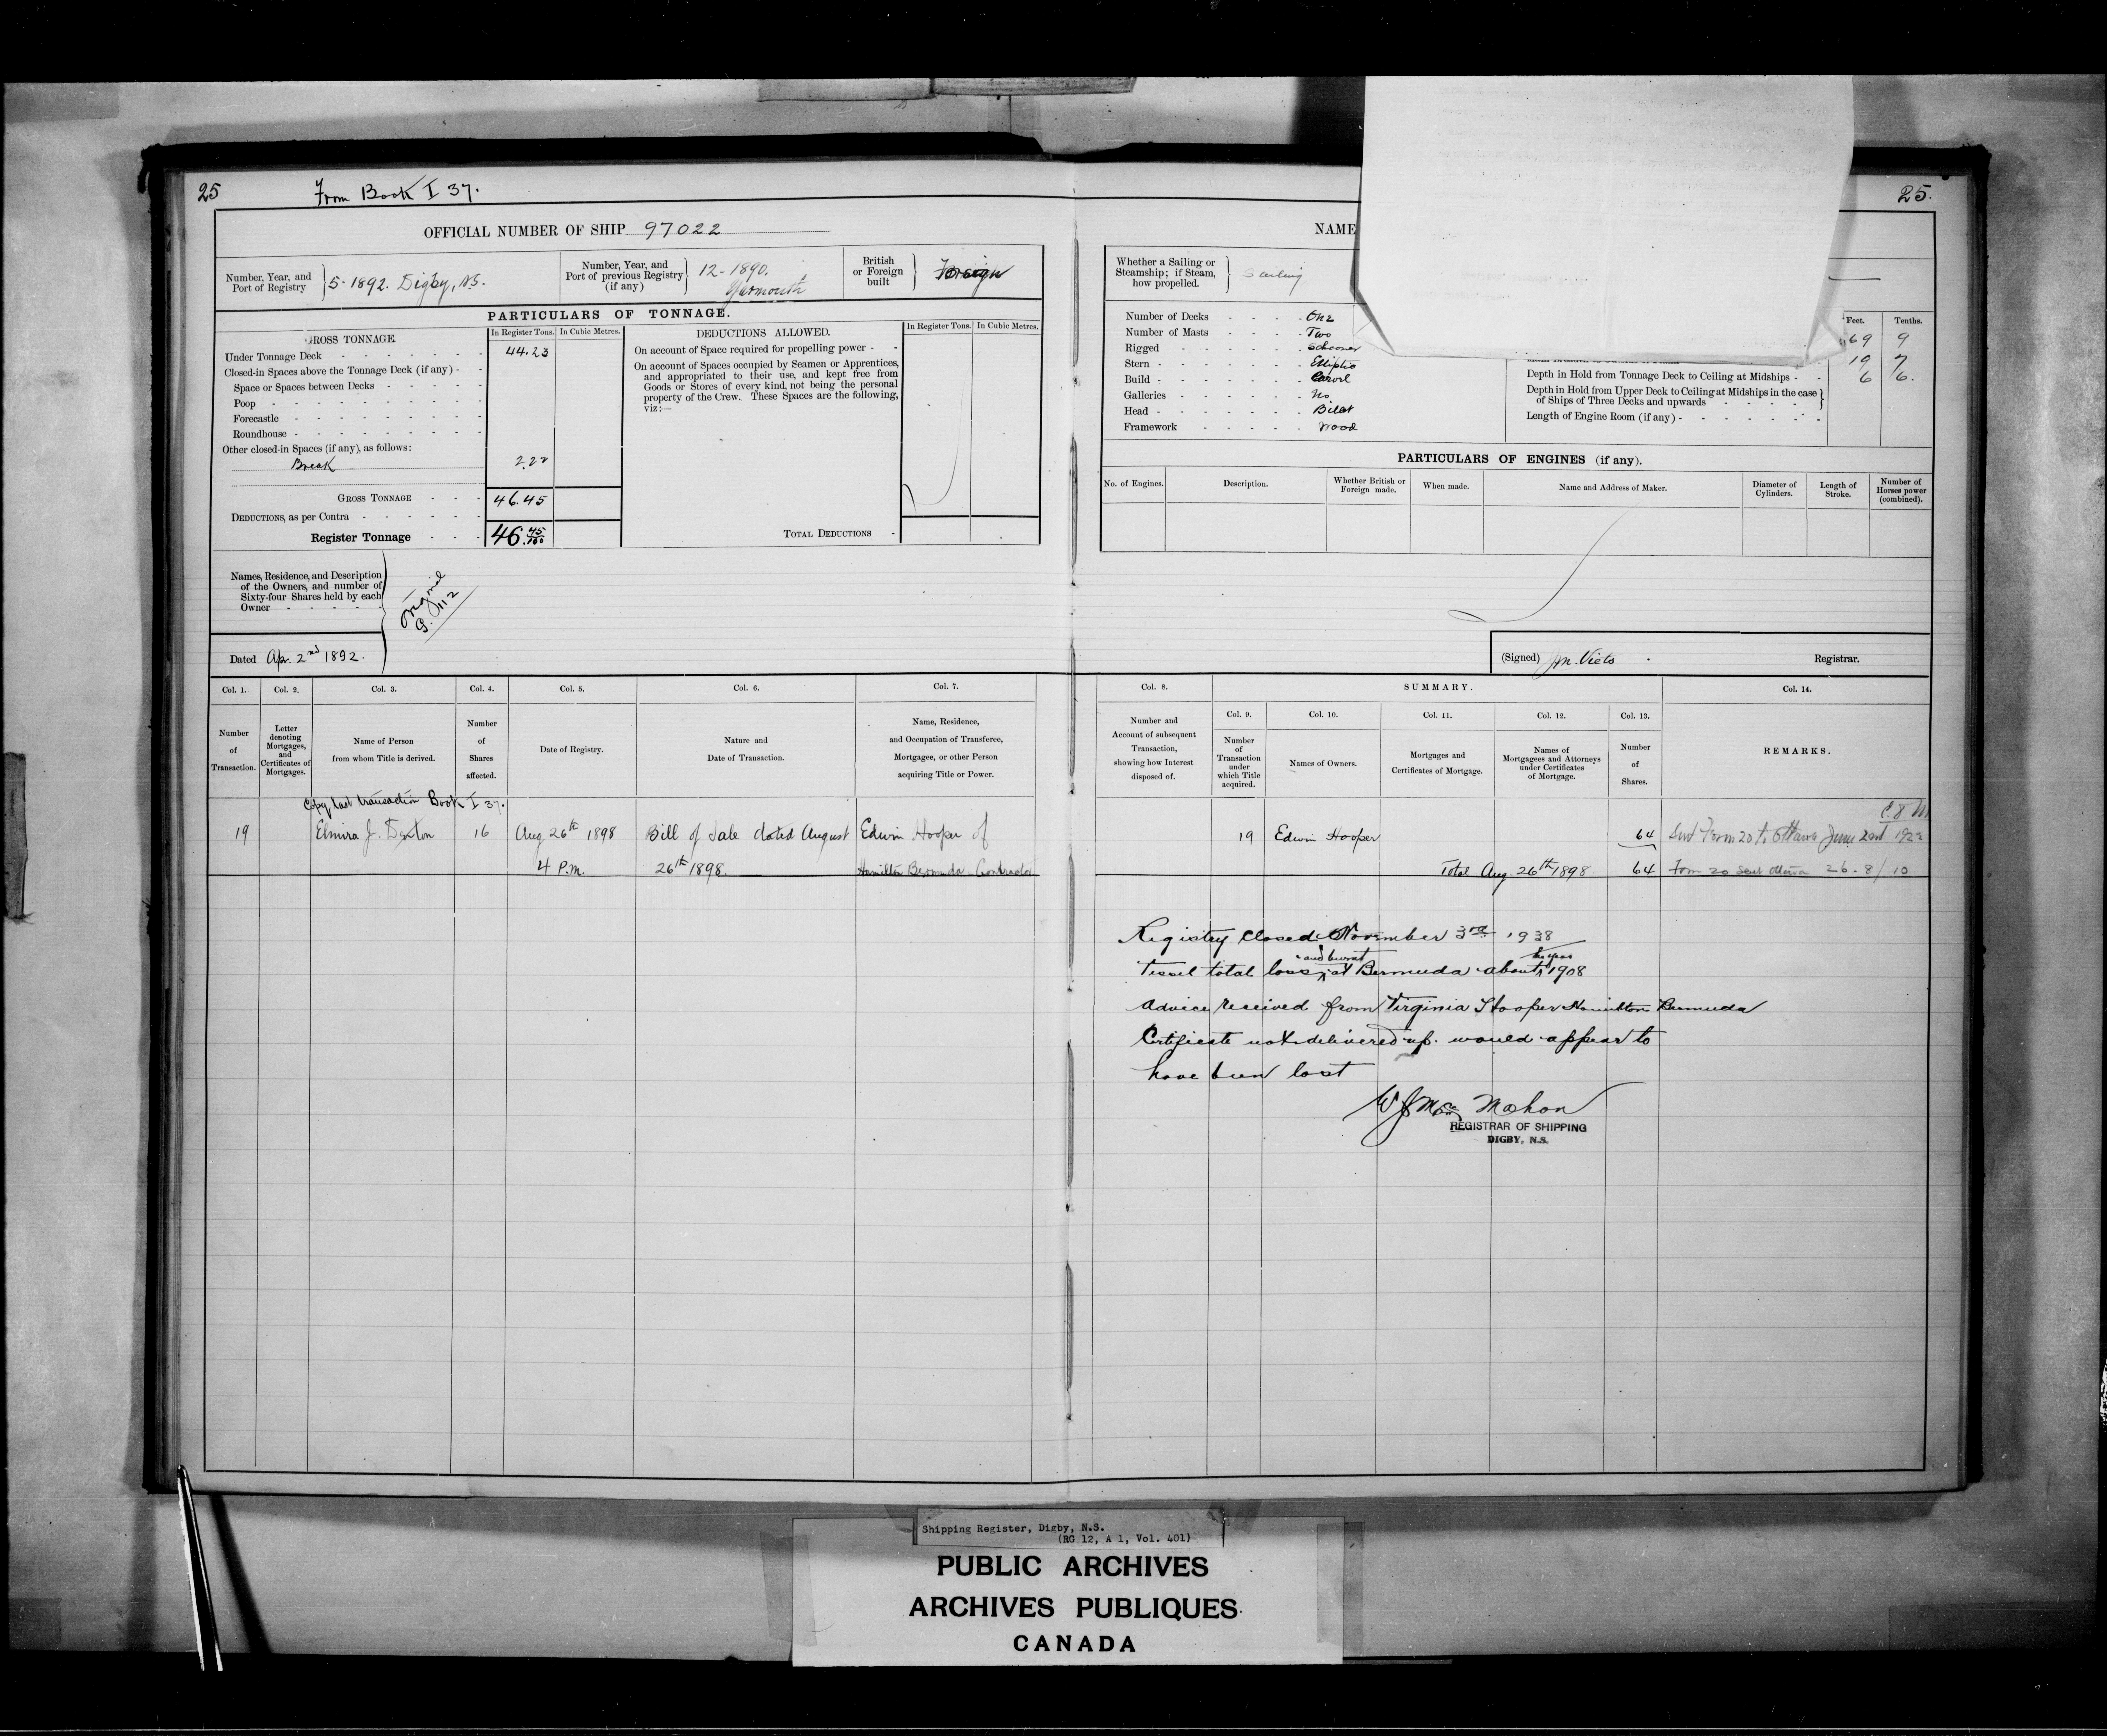 25 From Book I 37.
OFFICIAL NUMBER OF SHIP 97022
Number, Year, and Port of Registry } 5-1892. Digby, N.S.
Number, Year, and Port of previous Registry (if any) } 12-1890. Yarmouth
British or Foreign built } Foreign
PARTICULARS OF TONNAGE.
GROSS TONNAGE.
In Register Tons. In Cubic Metres.
Under Tonnage Deck 44.23
Closed-in Spaces above the Tonnage Deck (if any)
Space or Spaces between Decks
Poop
Forecastle
Roundhouse
Other closed-in Spaces (if any), as follows:
Break 2.22
GROSS TONNAGE 46.45
DEDUCTIONS, as per Contra
Register Tonnage 46 45/100
DEDUCTIONS ALLOWED.
In Register Tons. In Cubic Metres.
On account of Space required for propelling power
On account of Spaces occupied by Seamen or Apprentices,
and appropriated to their use, and kept free from
Goods or Stores of every kind, not being the personal
property of the Crew. These Spaces are the following,
viz:—
TOTAL DEDUCTIONS
Names, Residence, and Description
of the Owners, and number of
Sixty-four Shares held by each
Owner
Original
G. 112
Dated Apr. 2nd 1892.
Col. 1. Col. 2. Col. 3. Col. 4. Col. 5. Col. 6. Col. 7.
Number of Transaction.
Letter denoting Mortgages, and Certificates of Mortgages.
Name of Person from whom Title is derived.
Number of Shares affected.
Date of Registry.
Nature and Date of Transaction.
Name, Residence, and Occupation of Transferee, Mortgagee, or other Person acquiring Title or Power.
Copy last transaction Book I 37.
19 Elmira J. 16 Aug. 26th 1898 Bill of Sale dated August Edwin Hooper of
4 P.m. 26th 1898. Hamilton Bermuda Contractor
25.
NAME
Whether a Sailing or Steamship; if Steam, how propelled. } Sailing
Number of Decks One
Number of Masts Two
Rigged Schooner
Stern Elliptic
Build Carvel
Galleries No
Head Billet
Framework Wood
Feet. Tenths.
69 9
19 7
Depth in Hold from Tonnage Deck to Ceiling at Midships 6 6.
Depth in Hold from Upper Deck to Ceiling at Midships in the case
of Ships of Three Decks and upwards
Length of Engine Room (if any)
PARTICULARS OF ENGINES (if any).
No. of Engines. Description. Whether British or Foreign made. When made. Name and Address of Maker. Diameter of Cylinders. Length of Stroke. Number of Horses power (combined).
(Signed) J.M. Viets Registrar.
Col. 8. SUMMARY. Col. 14.
Col. 9. Col. 10. Col. 11. Col. 12. Col. 13.
Number and Account of subsequent Transaction, showing how Interest disposed of.
Number of Transaction under which Title acquired.
Names of Owners.
Mortgages and Certificates of Mortgage.
Names of Mortgagees and Attorneys under Certificates of Mortgage.
Number of Shares.
REMARKS.
19 Edwin Hooper 64 Sent Form 20 to Ottawa June 22nd
Total Aug. 26th 1898. 64 Form 20 sent Ottawa 26-8/10
Registry Closed November 3rd 1938
Vessel total loss and burnt at Bermuda about 1908
Advice received from Virginia Hooper Hamilton Bermuda
Certificate not delivered up. would appear to
have been lost
Mahon
REGISTRAR OF SHIPPING
DIGBY, N.S.
Shipping Register, Digby, N.S.
(RG 12, A 1, Vol. 401)
PUBLIC ARCHIVES
ARCHIVES PUBLIQUES
CANADA